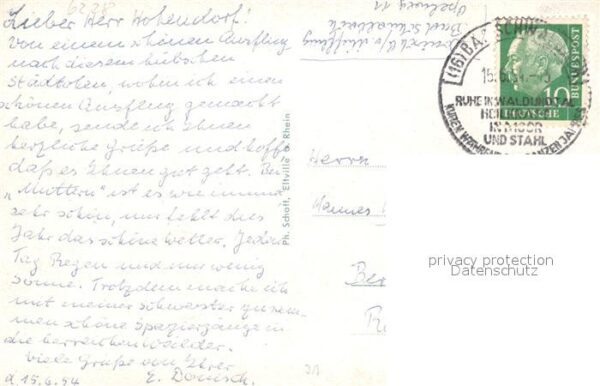 6228
Lieber Herr Hohendorf!
Von einem schönen Ausflug
nach diesem hübschen
Städtchen, wohin ich einen
schönen Ausflug gemacht
habe, sende ich Ihnen
herzliche Grüße und hoffe
daß es Ihnen gut geht. Bei
"Muttern" ist es wie immer
sehr schön, nur fehlt dies
Jahr das schöne Wetter. Jeden
Tag Regen und nur wenig
Sonne. Trotzdem mache ich
mit meiner Schwester zusam-
men schöne Spaziergänge in
die herrlichen Wälder.
Viele Grüße von Ihrer
d 15.6.54 E.
Ph. Schott, Eltville a. Rhein
Bad Schwalbach
11
(16) BAD SCHWA
15. 54.
RUHE IN WALD UND TAL
HEIL
IN MOOR
UND STAHL
KUREN WÄHREND GANZEN JAHRES
10
DEUTSCHE
BUNDESPOST
Herrn
Hannes
Be
privacy protection
Datenschutz